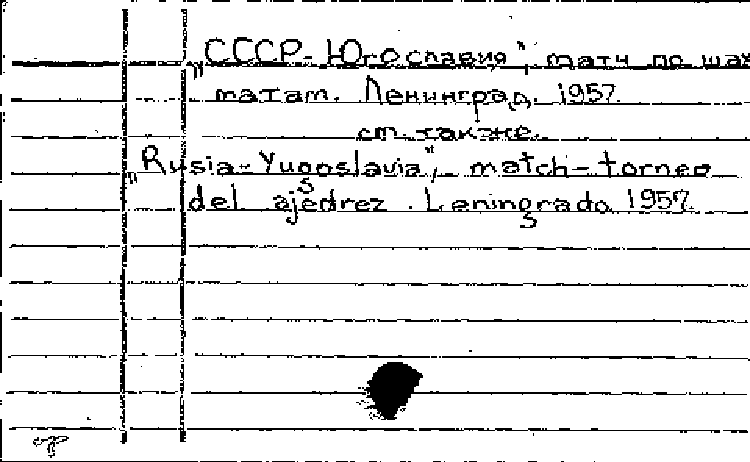 „СССР-Югославия", матч по шах
матам. Ленинград. 1957.
см. также.
„Rusia-Yugoslavia", match-torneo
del ajedrez. Leningrado 1957.